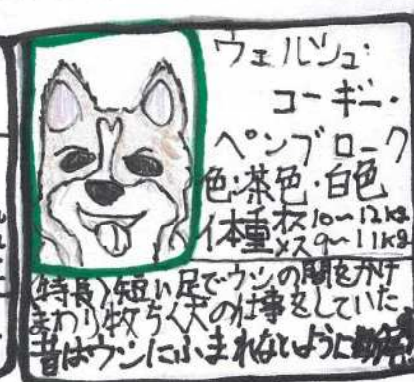 ウェルシュ・
コーギー・
ペンブローク
色:茶色・白色
体重 オス10~12kg
メス9~11kg
(特長)短い足でウシの間をかけ
まわり牧ちく犬の仕事をしていた
昔はウシにふまれないように